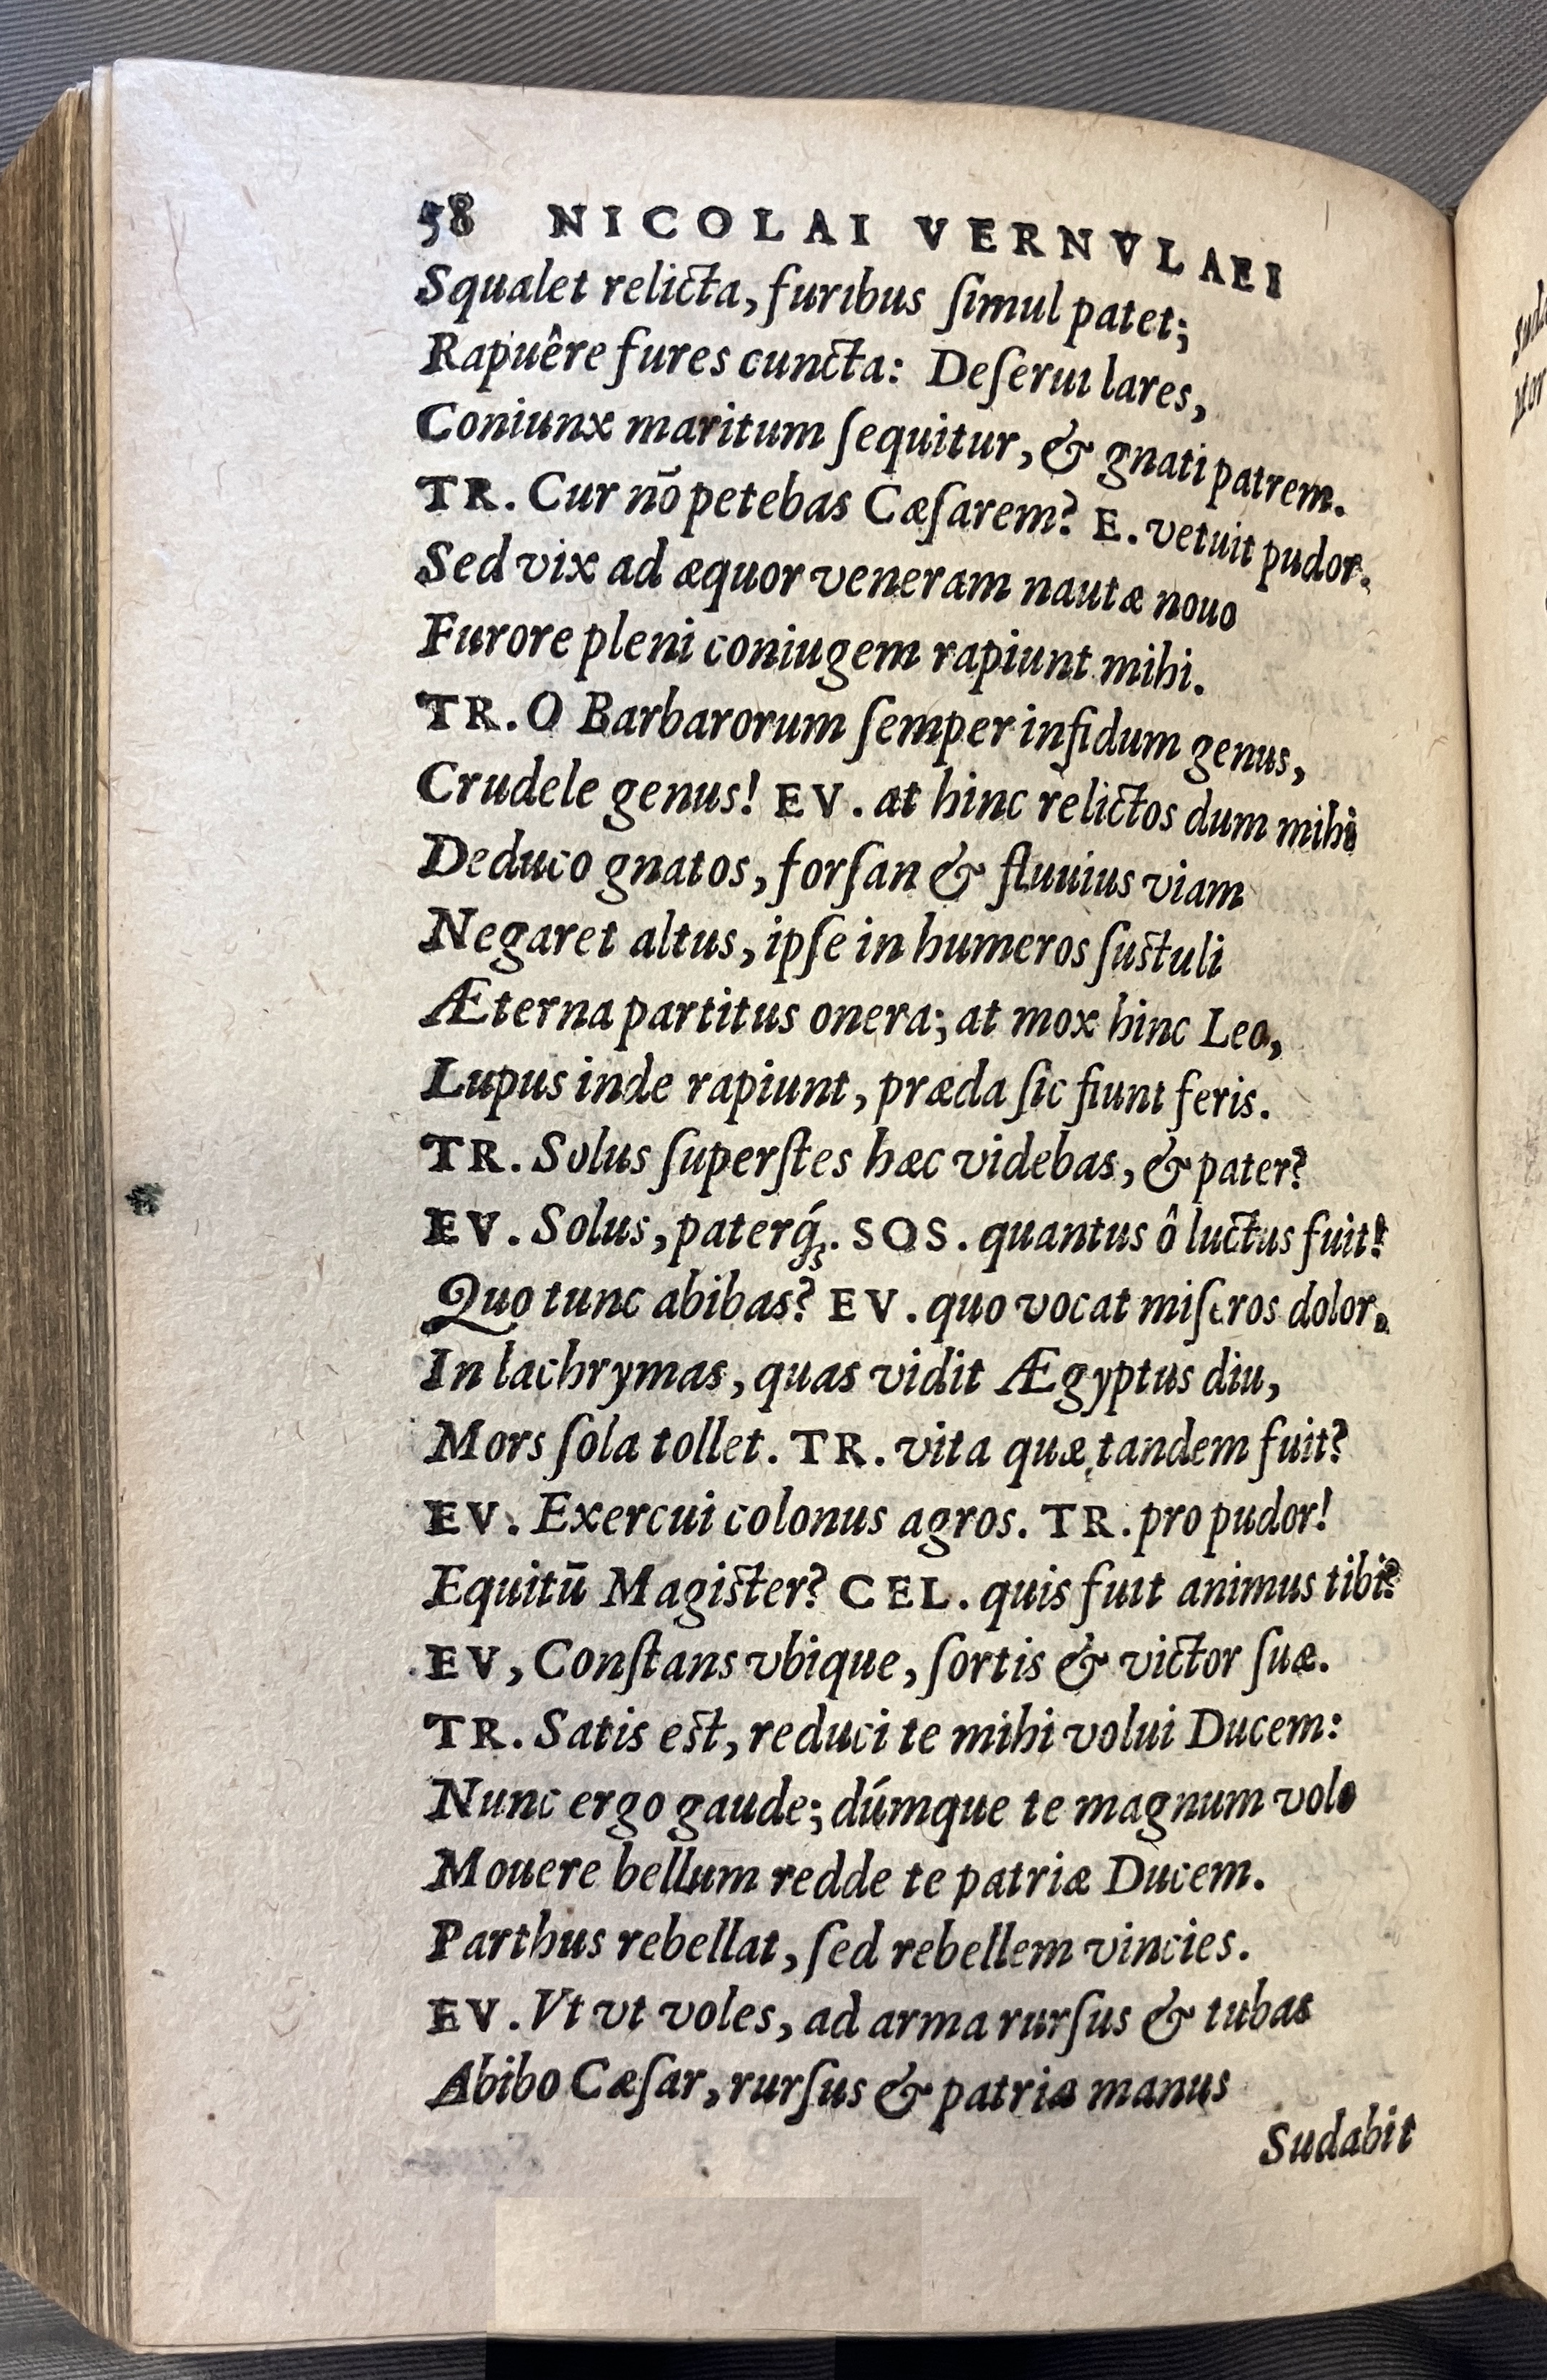 58 NICOLAI VERNVLAEI
Squalet relicta, furibus ſimul patet;
Rapuêre fures cuncta: Deſerui lares,
Coniunx maritum ſequitur, & gnati patrem.
TR. Cur nō petebas Cæſarem? E. vetuit pudor.
Sed vix ad æquor veneram nautæ nouo
Furore pleni coniugem rapiunt mihi.
TR. O Barbarorum ſemper infidum genus,
Crudele genus! EV. at hinc relictos dum mihi
Deduco gnatos, forſan & fluuius viam
Negaret altus, ipſe in humeros ſuſtuli
Æterna partitus onera; at mox hinc Leo,
Lupus inde rapiunt, præda ſic fiunt feris.
TR. Solus ſuperſtes hæc videbas, & pater?
EV. Solus, paterq́;. SOS. quantus ô luctus fuit!
Quo tunc abibas? EV. quo vocat miſeros dolor.
In lachrymas, quas vidit Ægyptus diu,
Mors ſola tollet. TR. vita quæ tandem fuit?
EV. Exercui colonus agros. TR. pro pudor!
Equitū Magiſter? CEL. quis fuit animus tibi?
EV, Conſtans vbique, ſortis & victor ſuæ.
TR. Satis eſt, reduci te mihi volui Ducem:
Nunc ergo gaude; dúmque te magnum volo
Mouere bellum redde te patriæ Ducem.
Parthus rebellat, ſed rebellem vincies.
EV. Vt vt voles, ad arma rurſus & tubas
Abibo Cæſar, rurſus & patria manus
Sudabit